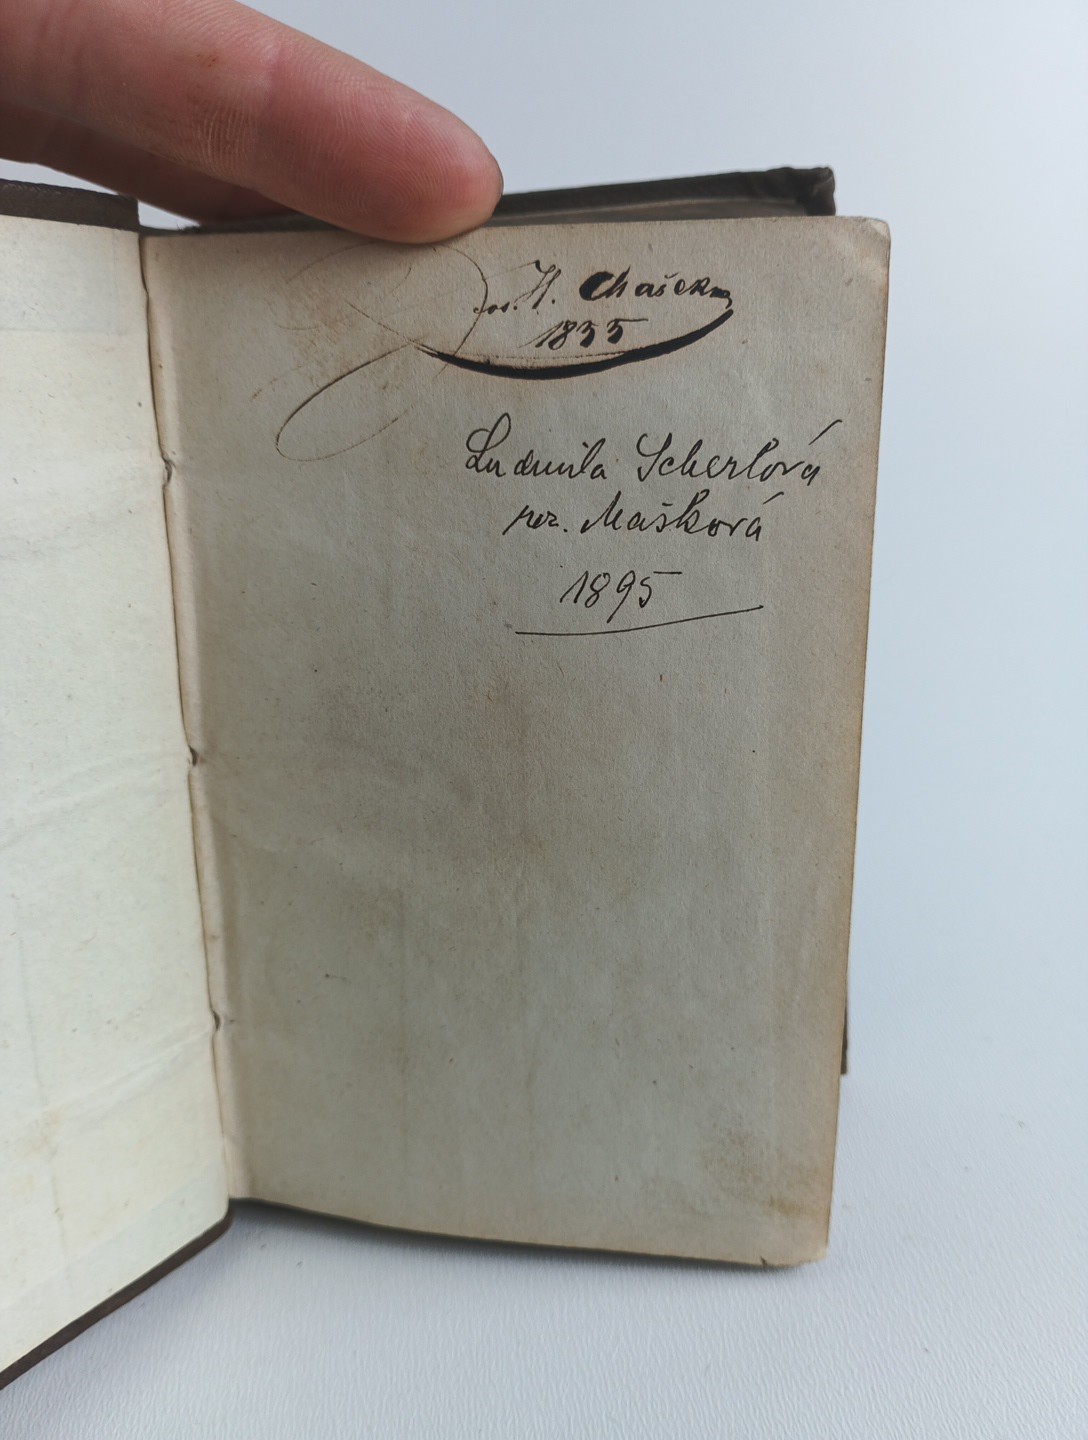 H. Chašek
1855
Ludmila Scherlová
roz. Mašková
1895